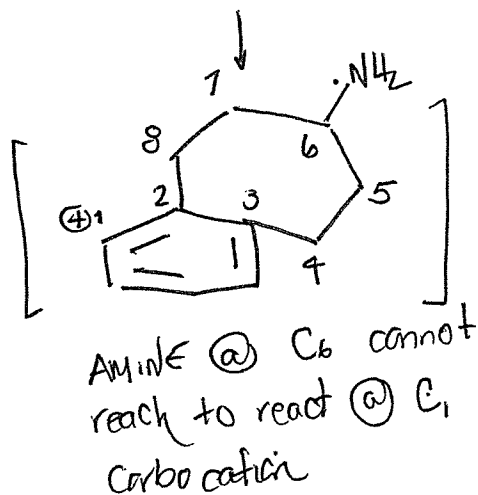 7
·NH2
8
6
2
3
5
⊕1
4
AMINE @ C6 cannot
reach to react @ C1
carbocation